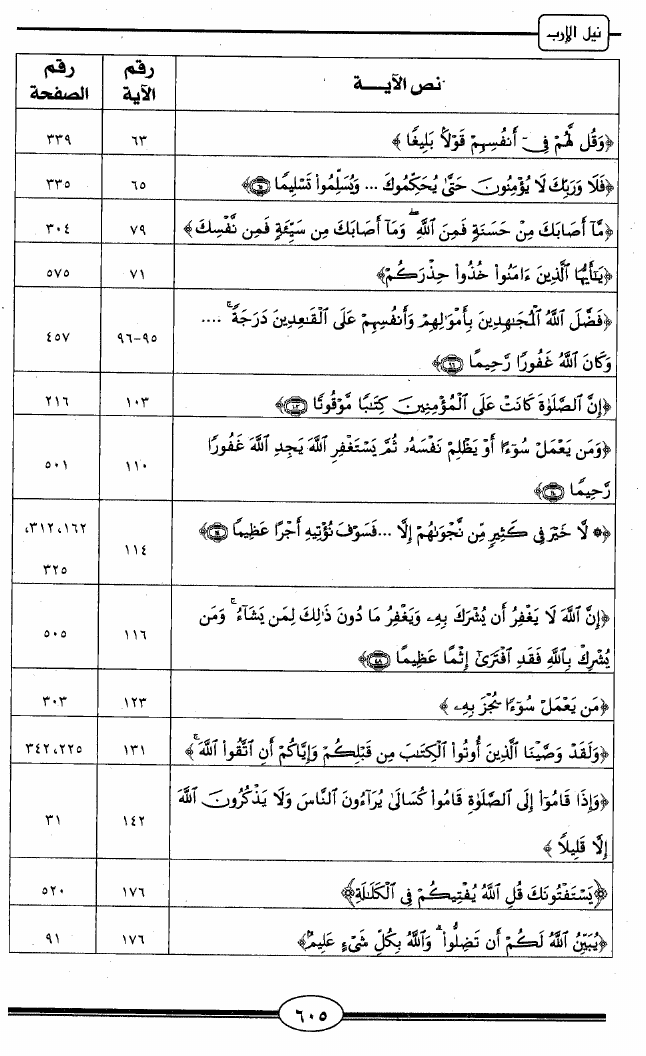 نيل الإرب
نص الآيـــة	رقم الآية	رقم الصفحة
﴿وَقُل لَّهُمْ فِىٓ أَنفُسِهِمْ قَوْلًۢا بَلِيغًا ﴾	٦٣	٣٣٩
﴿فَلَا وَرَبِّكَ لَا يُؤْمِنُونَ حَتَّىٰ يُحَكِّمُوكَ ... وَيُسَلِّمُوا۟ تَسْلِيمًا ﴾	٦٥	٣٣٥
﴿مَّآ أَصَابَكَ مِنْ حَسَنَةٍ فَمِنَ ٱللَّهِ ۖ وَمَآ أَصَابَكَ مِن سَيِّئَةٍ فَمِن نَّفْسِكَ ﴾	٧٩	٣٠٤
﴿يَـٰٓأَيُّهَا ٱلَّذِينَ ءَامَنُوا۟ خُذُوا۟ حِذْرَكُمْ﴾	٧١	٥٧٥
﴿فَضَّلَ ٱللَّهُ ٱلْمُجَـٰهِدِينَ بِأَمْوَٰلِهِمْ وَأَنفُسِهِمْ عَلَى ٱلْقَـٰعِدِينَ دَرَجَةً ۚ ....	٩٥-٩٦	٤٥٧
وَكَانَ ٱللَّهُ غَفُورًا رَّحِيمًا ﴿٩٦﴾﴾
﴿إِنَّ ٱلصَّلَوٰةَ كَانَتْ عَلَى ٱلْمُؤْمِنِينَ كِتَـٰبًا مَّوْقُوتًا ﴿١٠٣﴾﴾	١٠٣	٢١٦
﴿وَمَن يَعْمَلْ سُوٓءًا أَوْ يَظْلِمْ نَفْسَهُۥ ثُمَّ يَسْتَغْفِرِ ٱللَّهَ يَجِدِ ٱللَّهَ غَفُورًا	١١٠	٥٠١
رَّحِيمًا ﴾
﴿۞ لَّا خَيْرَ فِى كَثِيرٍ مِّن نَّجْوَىٰهُمْ إِلَّا ...فَسَوْفَ نُؤْتِيهِ أَجْرًا عَظِيمًا ﴾	١١٤	١٦٢، ٣١٢،
٣٢٥
﴿إِنَّ ٱللَّهَ لَا يَغْفِرُ أَن يُشْرَكَ بِهِۦ وَيَغْفِرُ مَا دُونَ ذَٰلِكَ لِمَن يَشَآءُ ۚ وَمَن	١١٦	٥٠٥
يُشْرِكْ بِٱللَّهِ فَقَدِ ٱفْتَرَىٰٓ إِثْمًا عَظِيمًا ﴿٤٨﴾﴾
﴿مَن يَعْمَلْ سُوٓءًا يُجْزَ بِهِۦ ﴾	١٢٣	٣٠٣
﴿وَلَقَدْ وَصَّيْنَا ٱلَّذِينَ أُوتُوا۟ ٱلْكِتَـٰبَ مِن قَبْلِكُمْ وَإِيَّاكُمْ أَنِ ٱتَّقُوا۟ ٱللَّهَ ۚ﴾	١٣١	٢٢٥، ٣٤٢
﴿وَإِذَا قَامُوٓا۟ إِلَى ٱلصَّلَوٰةِ قَامُوا۟ كُسَالَىٰ يُرَآءُونَ ٱلنَّاسَ وَلَا يَذْكُرُونَ ٱللَّهَ	١٤٢	٣١
إِلَّا قَلِيلًا ﴾
﴿يَسْتَفْتُونَكَ قُلِ ٱللَّهُ يُفْتِيكُمْ فِى ٱلْكَلَـٰلَةِ﴾	١٧٦	٥٢٠
﴿يُبَيِّنُ ٱللَّهُ لَكُمْ أَن تَضِلُّوا۟ ۗ وَٱللَّهُ بِكُلِّ شَىْءٍ عَلِيمٌۢ﴾	١٧٦	٩١
٦٠٥